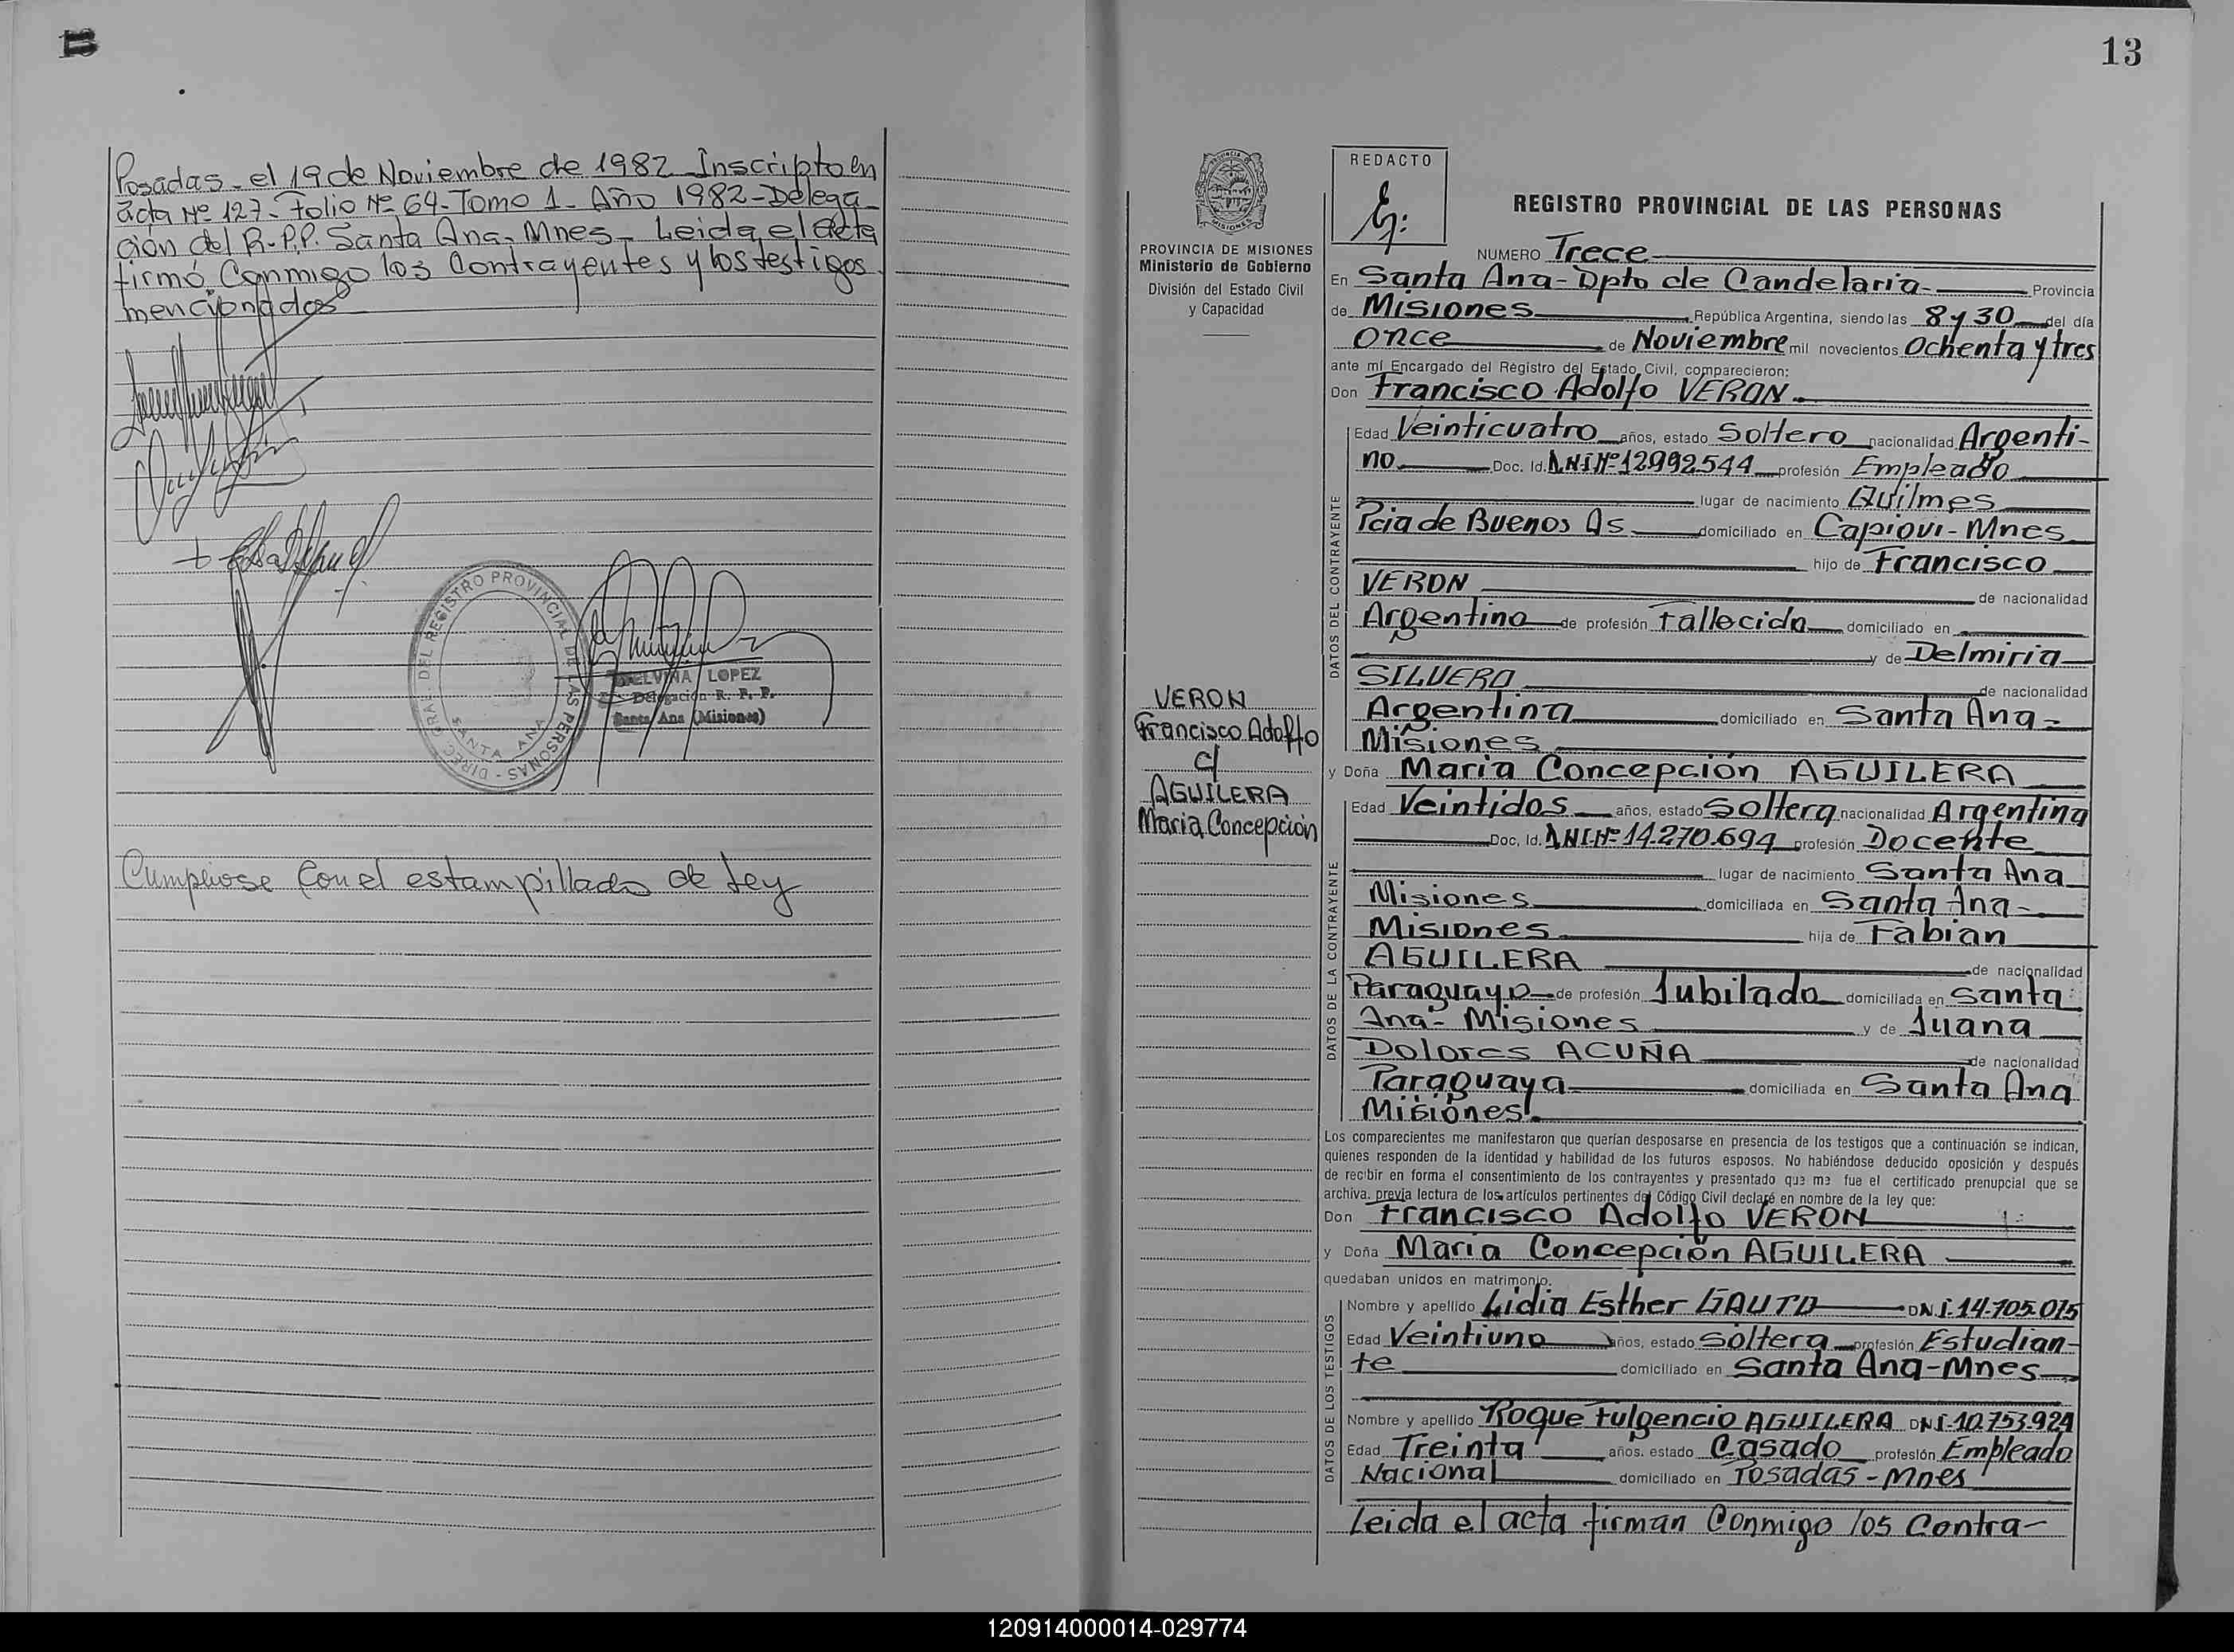 Posadas. el 19 de Noviembre de 1982 Inscripto en
acta Nº 127. Folio Nº 64-Tomo 1- Año 1982-Delega-
ción del R.P.P. Santa Ana-Mnes- Leida el acta
firmó Conmigo los Contrayentes y los testigos
mencionados
DIREC. GRAL. DEL REGISTRO PROVINCIAL DE LAS PERSONAS -
SANTA ANA
LOPEZ
Delegación R. P. P.
Santa Ana (Misiones)
Cumpliose Con el estampillado de Ley
13
PROVINCIA DE MISIONES
Ministerio de Gobierno
División del Estado Civil
y Capacidad
VERON
Francisco Adolfo
c/
AGUILERA
Maria Concepción
REDACTO
REGISTRO PROVINCIAL DE LAS PERSONAS
NUMERO Trece
En Santa Ana-Dpto de Candelaria- Provincia
de Misiones República Argentina, siendo las 8 y 30 del día
once de Noviembre mil novecientos Ochenta y tres
ante mí Encargado del Registro del Estado Civil, comparecieron:
Don Francisco Adolfo VERON.
DATOS DEL CONTRAYENTE
Edad Veinticuatro años, estado Soltero nacionalidad Argenti-
no Doc. Id. DNI Nº 12.992.544 profesión Empleado
lugar de nacimiento Quilmes
Pcia de Buenos As domiciliado en Capiovi-Mnes
hijo de Francisco
VERON de nacionalidad
Argentino de profesión Fallecido domiciliado en
y de Delmiria
SILVERO de nacionalidad
Argentina domiciliado en Santa Ana-
Misiones
y Doña Maria Concepción AGUILERA
DATOS DE LA CONTRAYENTE
Edad Veintidos años, estado Soltera nacionalidad Argentina
Doc. Id. DNI-Nº 14.270.694 profesión Docente
lugar de nacimiento Santa Ana
Misiones domiciliada en Santa Ana-
Misiones hija de Fabian
AGUILERA de nacionalidad
Paraguayo de profesión Jubilado domiciliada en Santa
Ana- Misiones y de Juana
Dolores ACUÑA de nacionalidad
Paraguaya domiciliada en Santa Ana
Misiones
Los comparecientes me manifestaron que querían desposarse en presencia de los testigos que a continuación se indican,
quienes responden de la identidad y habilidad de los futuros esposos. No habiéndose deducido oposición y después
de recibir en forma el consentimiento de los contrayentes y presentado que me fue el certificado prenupcial que se
archiva. previa lectura de los artículos pertinentes del Código Civil declaré en nombre de la ley que:
Don Francisco Adolfo VERON
y Doña Maria Concepción AGUILERA
quedaban unidos en matrimonio.
DATOS DE LOS TESTIGOS
Nombre y apellido Lidia Esther GAUTO DNI-14.105.015
Edad Veintiuno años, estado Soltera profesión Estudian-
te domiciliado en Santa Ana-Mnes
Nombre y apellido Roque Fulgencio AGUILERA DNI-10.753.924
Edad Treinta años. estado Casado profesión Empleado
Nacional domiciliado en Posadas-Mnes
Leida el acta firman Conmigo los Contra-
120914000014-029774